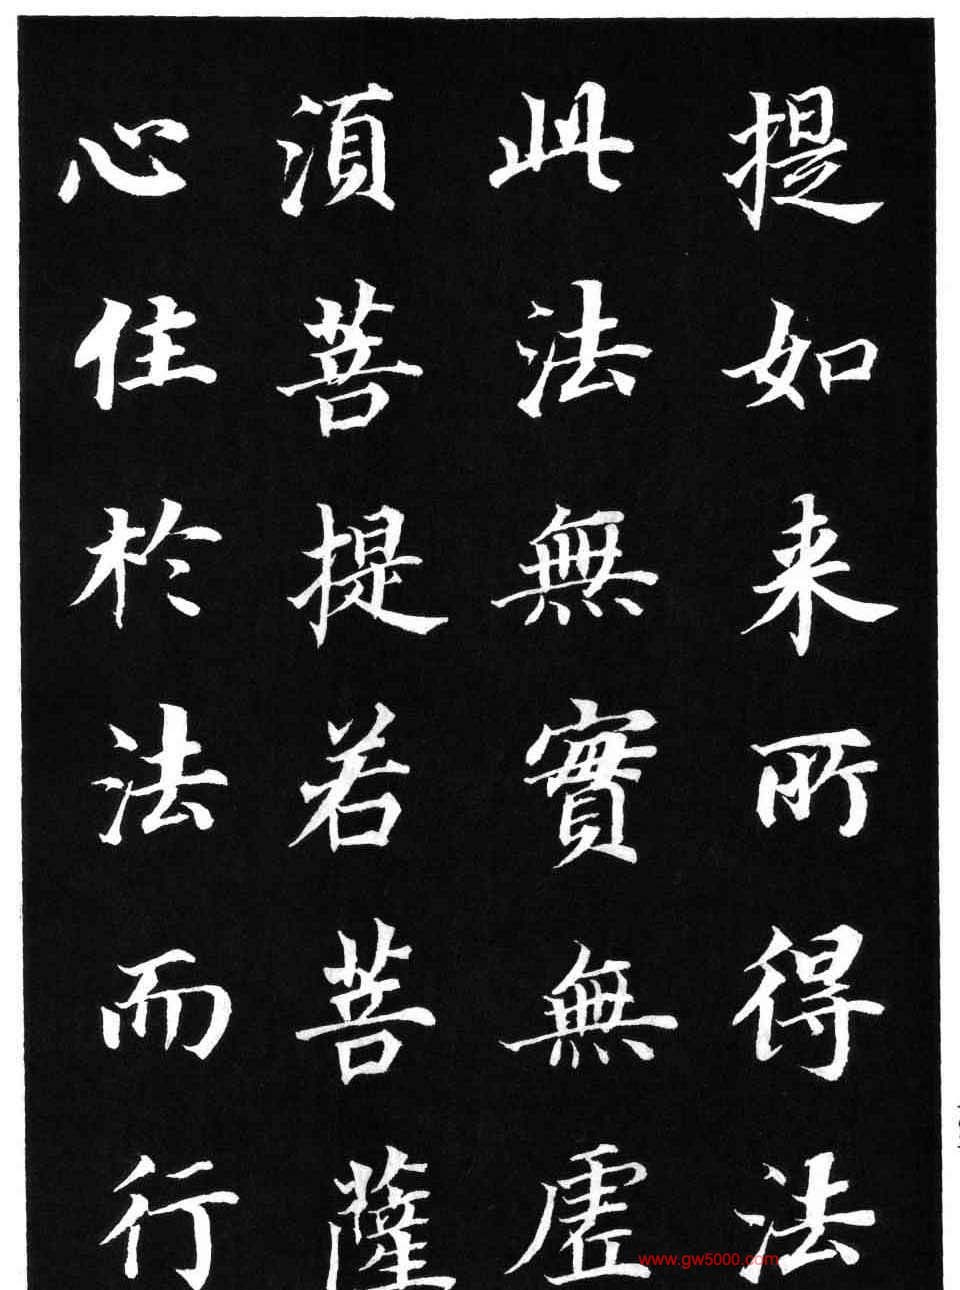 提如来所得法
此法無實無虛
湏菩提若菩薩
心住於法而行
www.gw5000.com